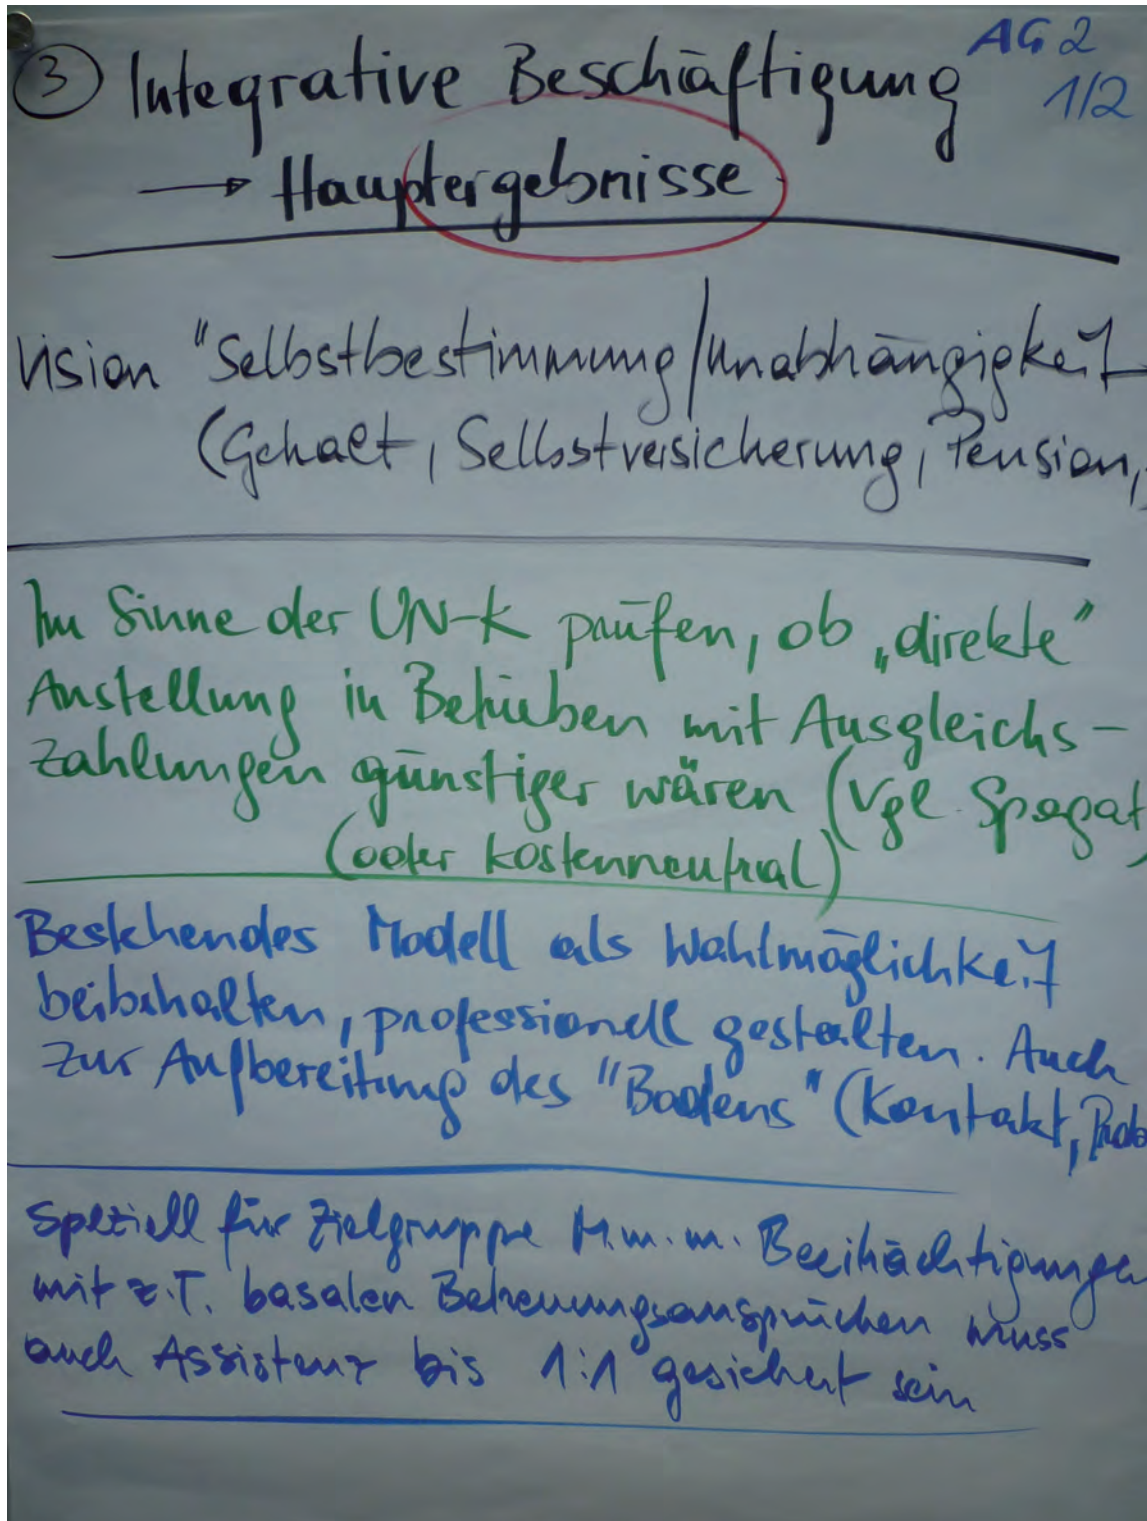 ③ Integrative Beschäftigung
AG 2
1/2
→ Hauptergebnisse
Vision "Selbstbestimmung/Unabhängigkeit
(Gehalt, Selbstversicherung, Pension,
Im Sinne der UN-K prüfen, ob „direkte"
Anstellung in Betrieben mit Ausgleichs-
zahlungen günstiger wären (Vgl. Spagat)
(oder kostenneutral)
Bestehendes Modell als Wahlmöglichkeit
beibehalten, professionell gestalten. Auch
zur Aufbereitung des "Bodens" (Kontakt,
Speziell für Zielgruppe M.m.m. Beeiträchtigungen
mit z.T. basalen Betreuungsansprüchen muss
auch Assistenz bis 1:1 gesichert sein